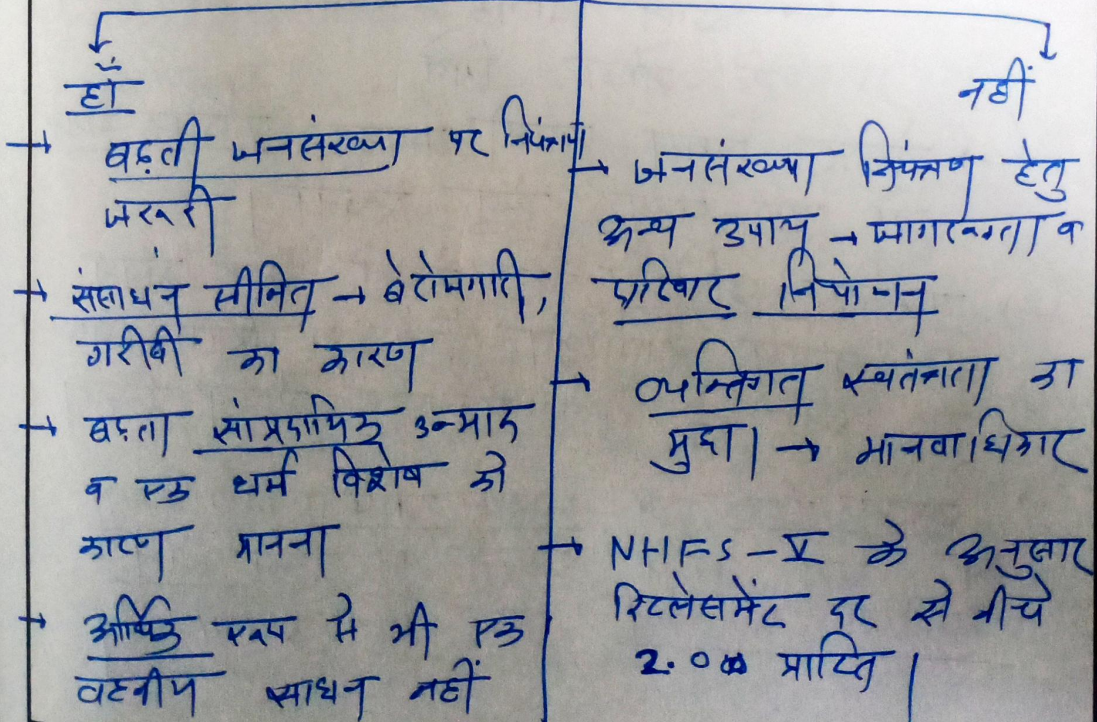 हाँ
→ बढ़ती जनसंख्या पर नियंत्रण
जरूरी
→ संसाधन सीमित → बेरोजगारी,
गरीबी का कारण
→ बढ़ता सांप्रदायिक उन्माद
व एक धर्म विशेष को
कारण मानना
→ आर्थिक रूप से भी एक
वहनीय साधन नहीं
नहीं
→ जनसंख्या नियंत्रण हेतु
अन्य उपाय → जागरूकता व
परिवार नियोजन
→ व्यक्तिगत स्वतंत्रता का
मुद्दा। → मानवाधिकार
→ NHFS-V के अनुसार
रिप्लेसमेंट दर से नीचे
2.0 प्राप्ति।